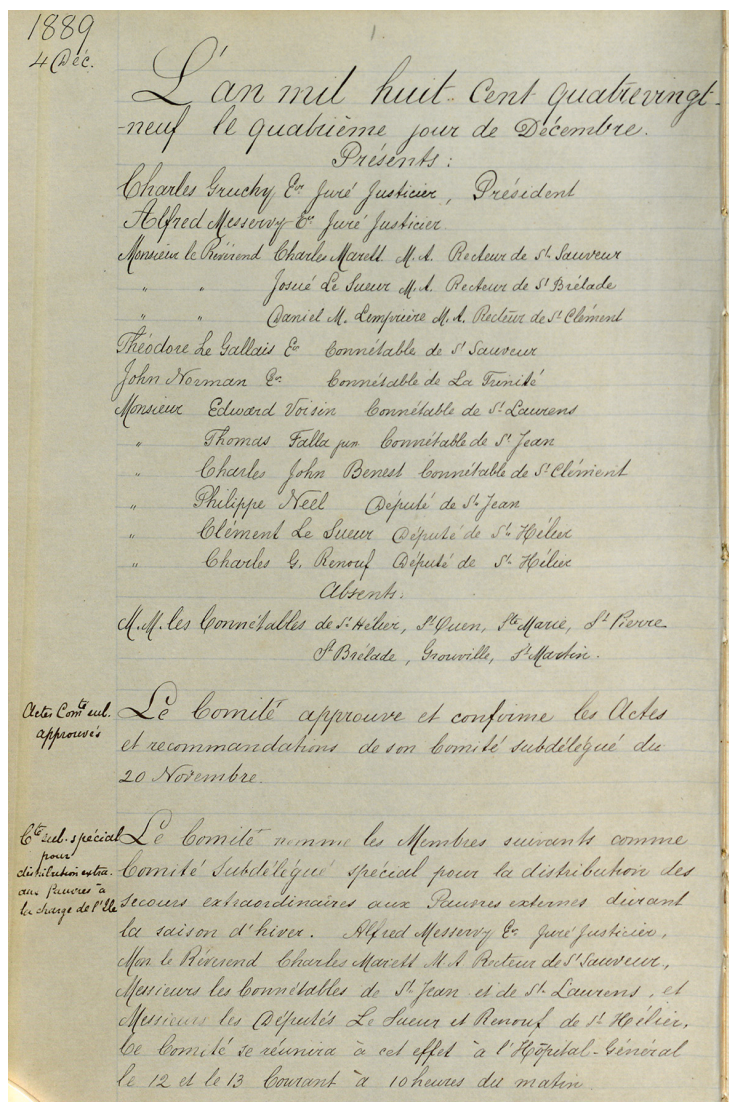 1889
4 Déc.
1.
L'an mil huit cent quatrevingt-
-neuf le quatrième jour de Décembre.
Présents:
Charles Gruchy Er Juré Justicier, Président
Alfred Messervy Er Juré Justicier
Monsieur le Révérend Charles Marett M.A. Recteur de St. Sauveur
" " Josué Le Sueur M.A. Recteur de St Brélade
" " Daniel M. Lempriere M.A. Recteur de St Clément
Théodore Le Gallais Er Connétable de St Sauveur
John Norman Er Connétable de La Trinité
Monsieur Edward Voisin Connétable de St. Laurens
" Thomas Falla jun Connétable de St Jean
" Charles John Benest Connétable de St Clément
" Philippe Neel Député de St Jean
" Clément Le Sueur Député de St. Hélier
" Charles G. Renouf Député de St. Hélier
Absents:
M.M. les Connétables de St Hélier, St Ouen, Ste Marie, St Pierre
St Brélade, Grouville, St Martin.
Actes Comté sub.
approuvés
Le Comité approuve et confirme les Actes
et recommandations de son Comité subdélégué du
20 Novembre.
Cté sub. spécial
pour
distribution extra.
aux Pauvres à
la charge de l'Ile
Le Comité nomme les Membres suivants comme
Comité Subdélégué spécial pour la distribution des
secours extraordinaires aux Pauvres externes durant
la saison d'hiver. Alfred Messervy Er Juré Justicier,
Mon le Révérend Charles Marett M.A Recteur de St Sauveur,
Messieurs les Connétables de St. Jean et de St. Laurens, et
Messieurs les Députés Le Sueur et Renouf de St Hélier.
Ce Comité se réunira à cet effet à l'Hôpital-Général
le 12 et le 13 Courant à 10 heures du matin.